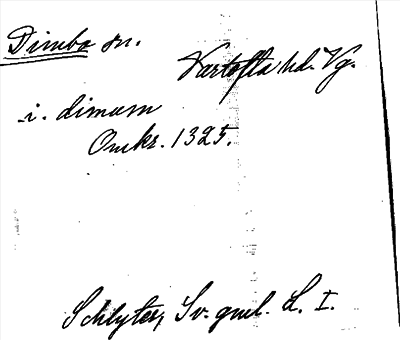 Dimbo sn.
Vartofta hd. Vg.
i. dimum
Omkr. 1325.
Schlyter, Sv. gml. L. I.